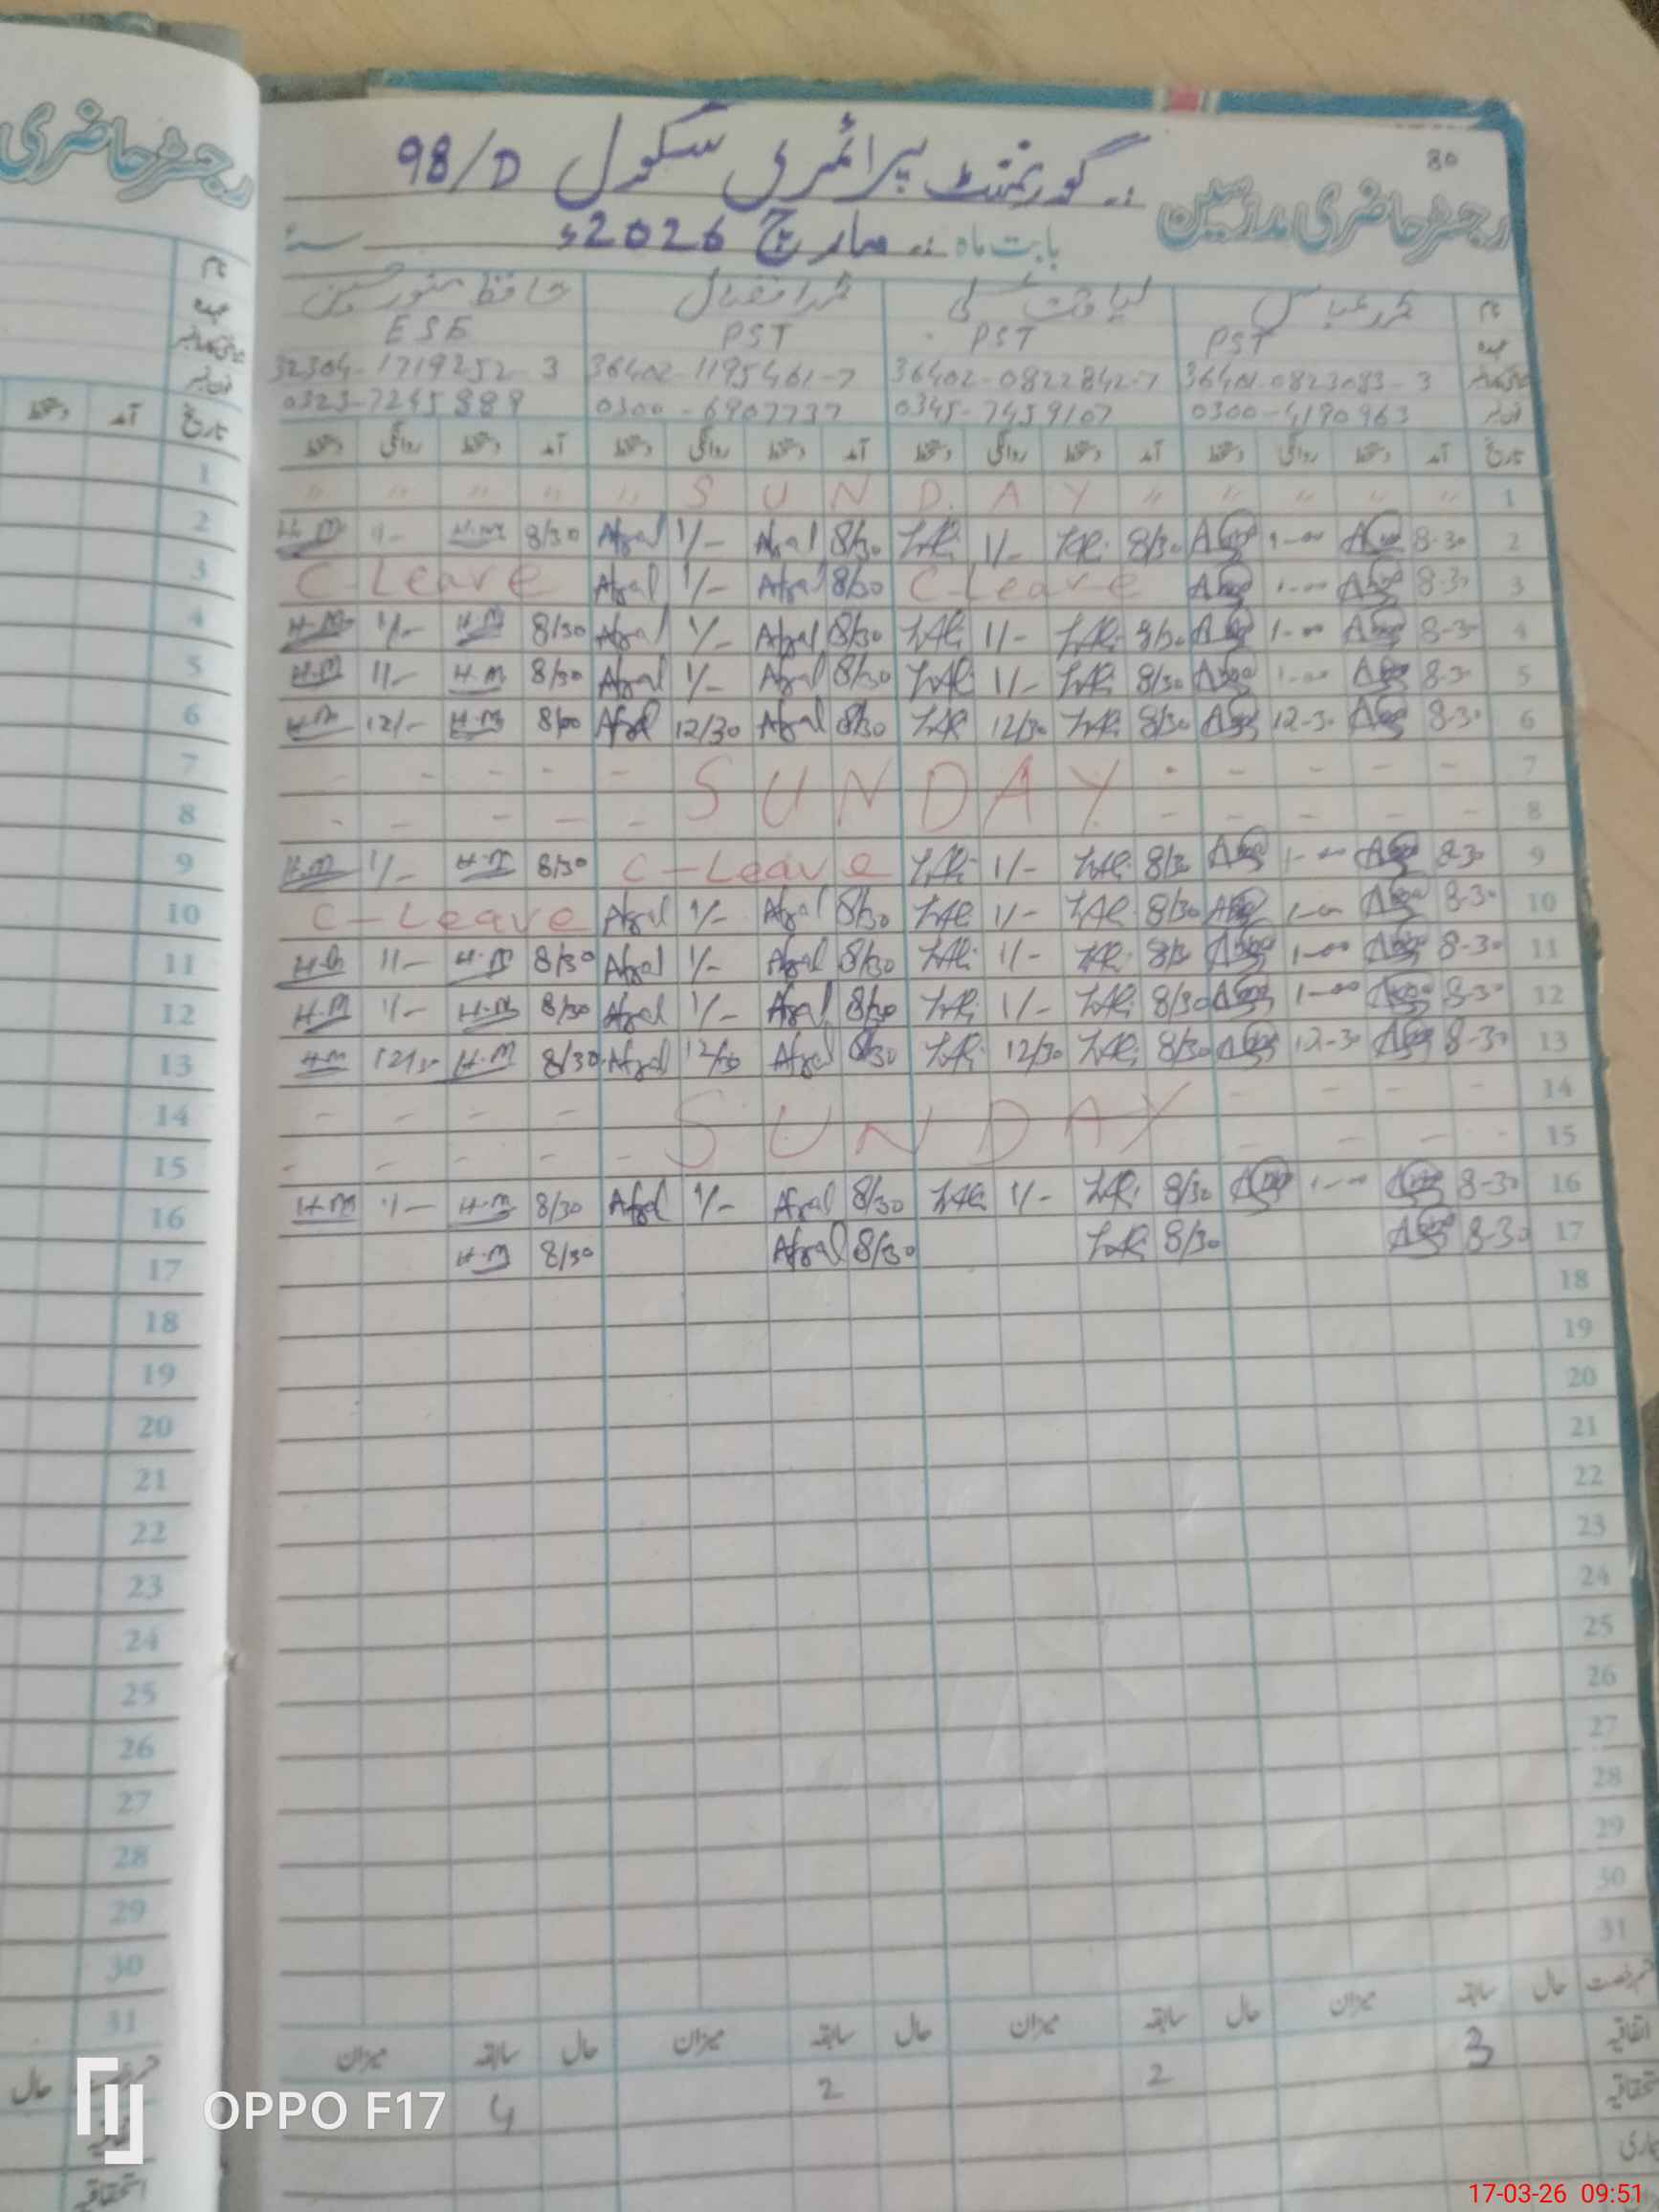 رجسٹر حاضری
80
گورنمنٹ پرائمری سکول 98/D
رجسٹر حاضری مدرسین
بابت ماہ مارچ 2026ء سنہ
نام محمد عباس لیاقت علی محمد افضال حافظ منور حسین
عہدہ PST PST PST ESE
36401-0823083-3 36402-0822842-7 36402-1195461-7 32304-1719252-3
فون نمبر 0300-4190963 0345-7459107 0300-6907737 0323-7245889
تاریخ آمد دستخط روانگی دستخط آمد دستخط روانگی دستخط آمد دستخط روانگی دستخط آمد دستخط روانگی دستخط
" " " " " S U N D A Y " " " " " 1
H.M 1/- H.M 8/30 Afzal 1/- Afzal 8/30 LAli 1/- LAli 8/30 1-00 8-30 2
C-Leave Afzal 1/- Afzal 8/30 C-Leave 1-00 8-30 3
H.M 1/- H.M 8/30 Afzal 1/- Afzal 8/30 LAli 1/- LAli 8/30 1-00 8-30 4
H.M 1/- H.M 8/30 Afzal 1/- Afzal 8/30 LAli 1/- LAli 8/30 1-00 8-30 5
H.M 12/- H.M Afzal 12/30 Afzal 8/30 LAli 12/30 LAli 8/30 12-30 8-30 6
7
S U N D A Y
8
H.M 1/- H.M 8/30 C-Leave LAli 1/- LAli 8/30 1-00 8-30 9
C-Leave Afzal 1/- Afzal 8/30 LAli 1/- LAli 8/30 1-00 8-30 10
H.M 1/- H.M 8/30 Afzal 1/- Afzal 8/30 LAli 1/- LAli 8/30 1-00 8-30 11
H.M 1/- H.M 8/30 Afzal 1/- Afzal 8/30 LAli 1/- LAli 8/30 1-00 8-30 12
H.M 12/30 H.M 8/30 Afzal 12/30 Afzal 8/30 LAli 12/30 LAli 8/30 12-30 8-30 13
14
S U N D A Y
15
H.M 1/- H.M 8/30 Afzal 1/- Afzal 8/30 LAli 1/- LAli 8/30 1-00 8-30 16
H.M 8/30 Afzal 8/30 LAli 8/30 8-30 17
18
19
20
21
22
23
24
25
26
27
28
29
30
31
حال سابقہ میزان حال سابقہ میزان حال سابقہ میزان حال سابقہ میزان
اتفاقیہ 3 2 2 4
استحقاقیہ
بیماری
نام
عہدہ
فون نمبر
تاریخ آمد دستخط
1
2
3
4
5
6
7
8
9
10
11
12
13
14
15
16
17
18
19
20
21
22
23
24
25
26
27
28
29
30
31
حال
استحقاقیہ
OPPO F17
17-03-26 09:51